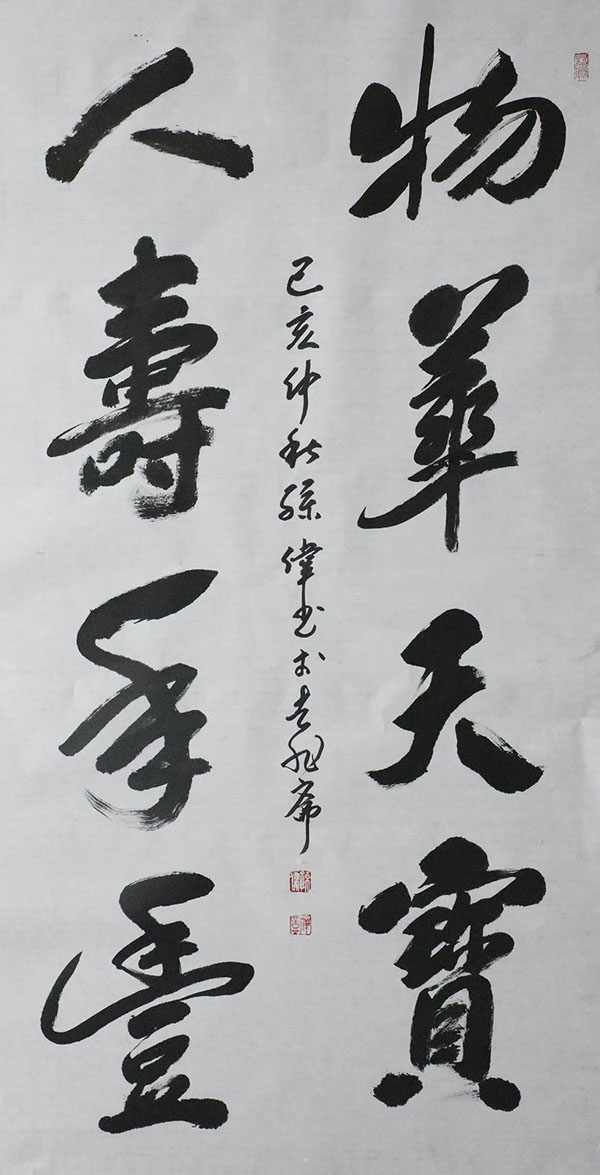 物華天寶
人壽年豐
己亥仲秋孫偉書於去非齋